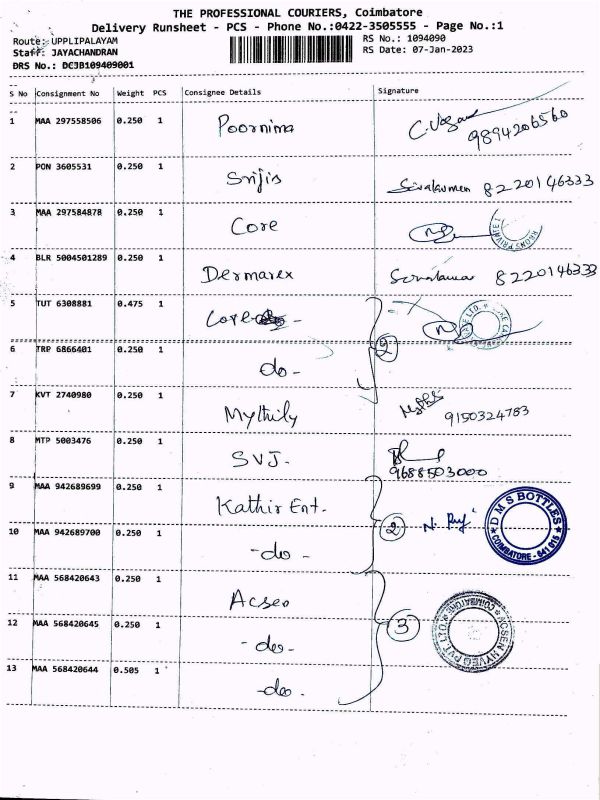 THE PROFESSIONAL COURIERS, Coimbatore
Delivery Runsheet - PCS - Phone No.:0422-3505555 - Page No.:1
Route: UPPLIPALAYAM RS No.: 1094090
Staff: JAYACHANDRAN RS Date: 07-Jan-2023
DRS No.: DCJB109409001
S No Consignment No Weight PCS Consignee Details Signature
1 MAA 297558506 0.250 1 Poornima 9894206560
2 PON 3605531 0.250 1 Srijis Sivakumar 8220146333
3 MAA 297584878 0.250 1 Core
4 BLR 5004501289 0.250 1 Dermarex Sivakumar 8220146333
5 TUT 6308881 0.475 1 Core - 2
6 TRP 6866401 0.250 1 do-
7 KVT 2740980 0.250 1 Mythily 9150324783
8 MTP 5003476 0.250 1 SVJ. 9688503000
9 MAA 942689699 0.250 1 Kathir Ent. 2 DMS BOTTLES COIMBATORE - 641 015
10 MAA 942689700 0.250 1 -do-
11 MAA 568420643 0.250 1 Acsen 3 ACSEN HYVEG PVT LTD. COIMBATORE
12 MAA 568420645 0.250 1 -do-
13 MAA 568420644 0.505 1 -do-